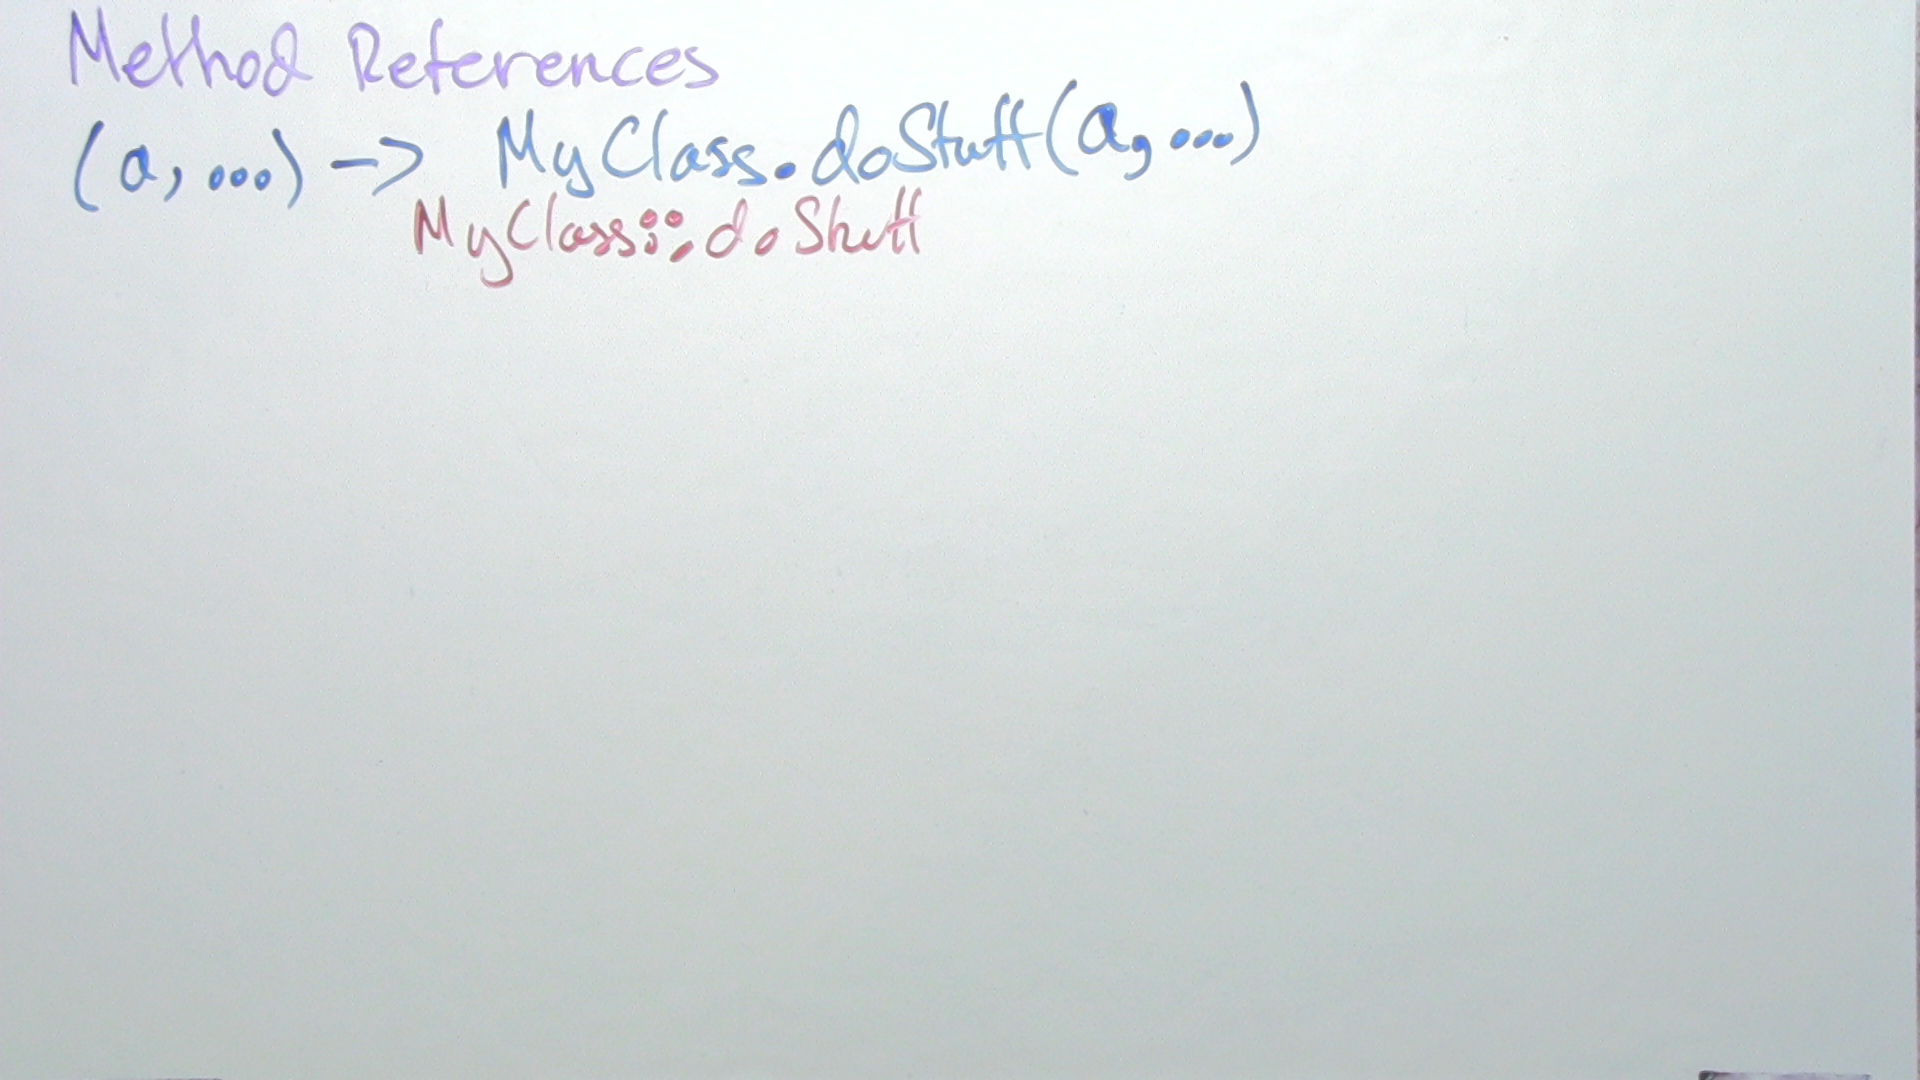 Method References
(a, ...) -> MyClass.doStuff(a, ...)
MyClass::doStuff